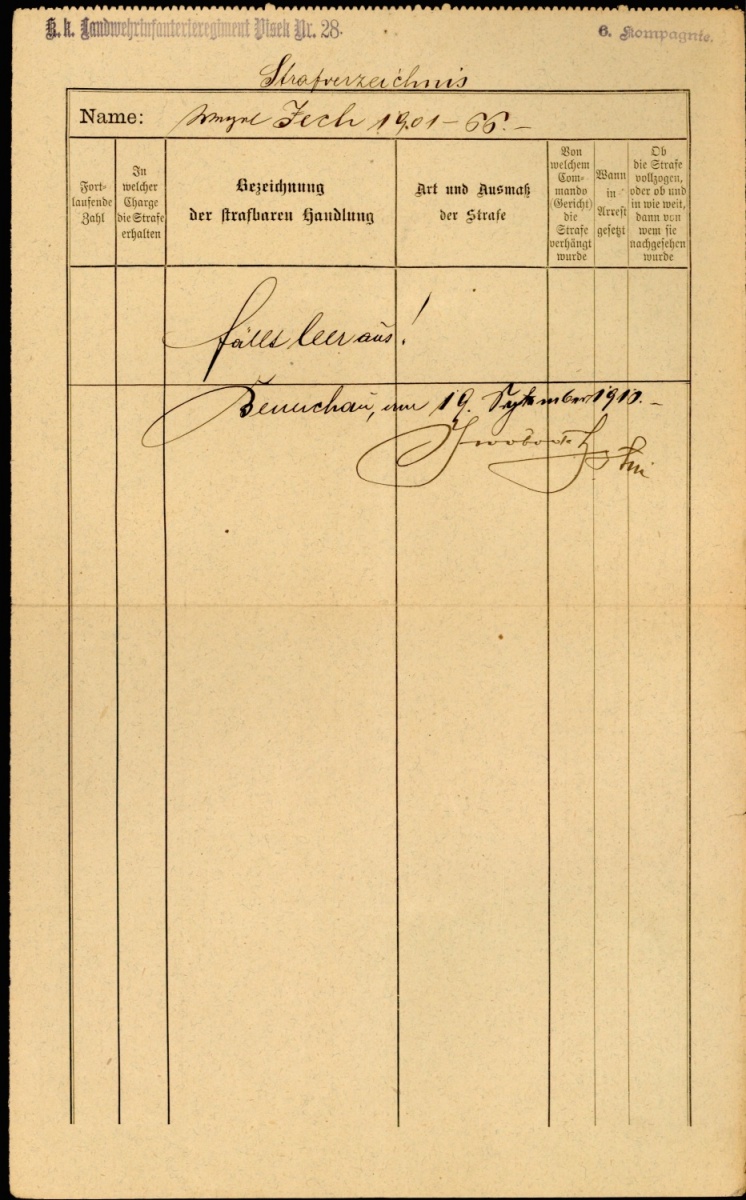 K. k. Landwehrinfanterieregiment Pisek Nr. 28.
6. Kompagnie.
Strafverzeichnis
Name: Zech 1901 – 66. –
Fort-
laufende
Zahl
In
welcher
Charge
die Strafe
erhalten
Bezeichnung
der strafbaren Handlung
Art und Ausmaß
der Strafe
Von
welchem
Com-
mando
(Gericht)
die
Strafe
verhängt
wurde
Wann
in
Arrest
gesetzt
Ob
die Strafe
vollzogen,
oder ob und
in wie weit,
dann von
wem sie
nachgesehen
wurde
fällt leer aus!
Beneschau, am 19. September 1910. –